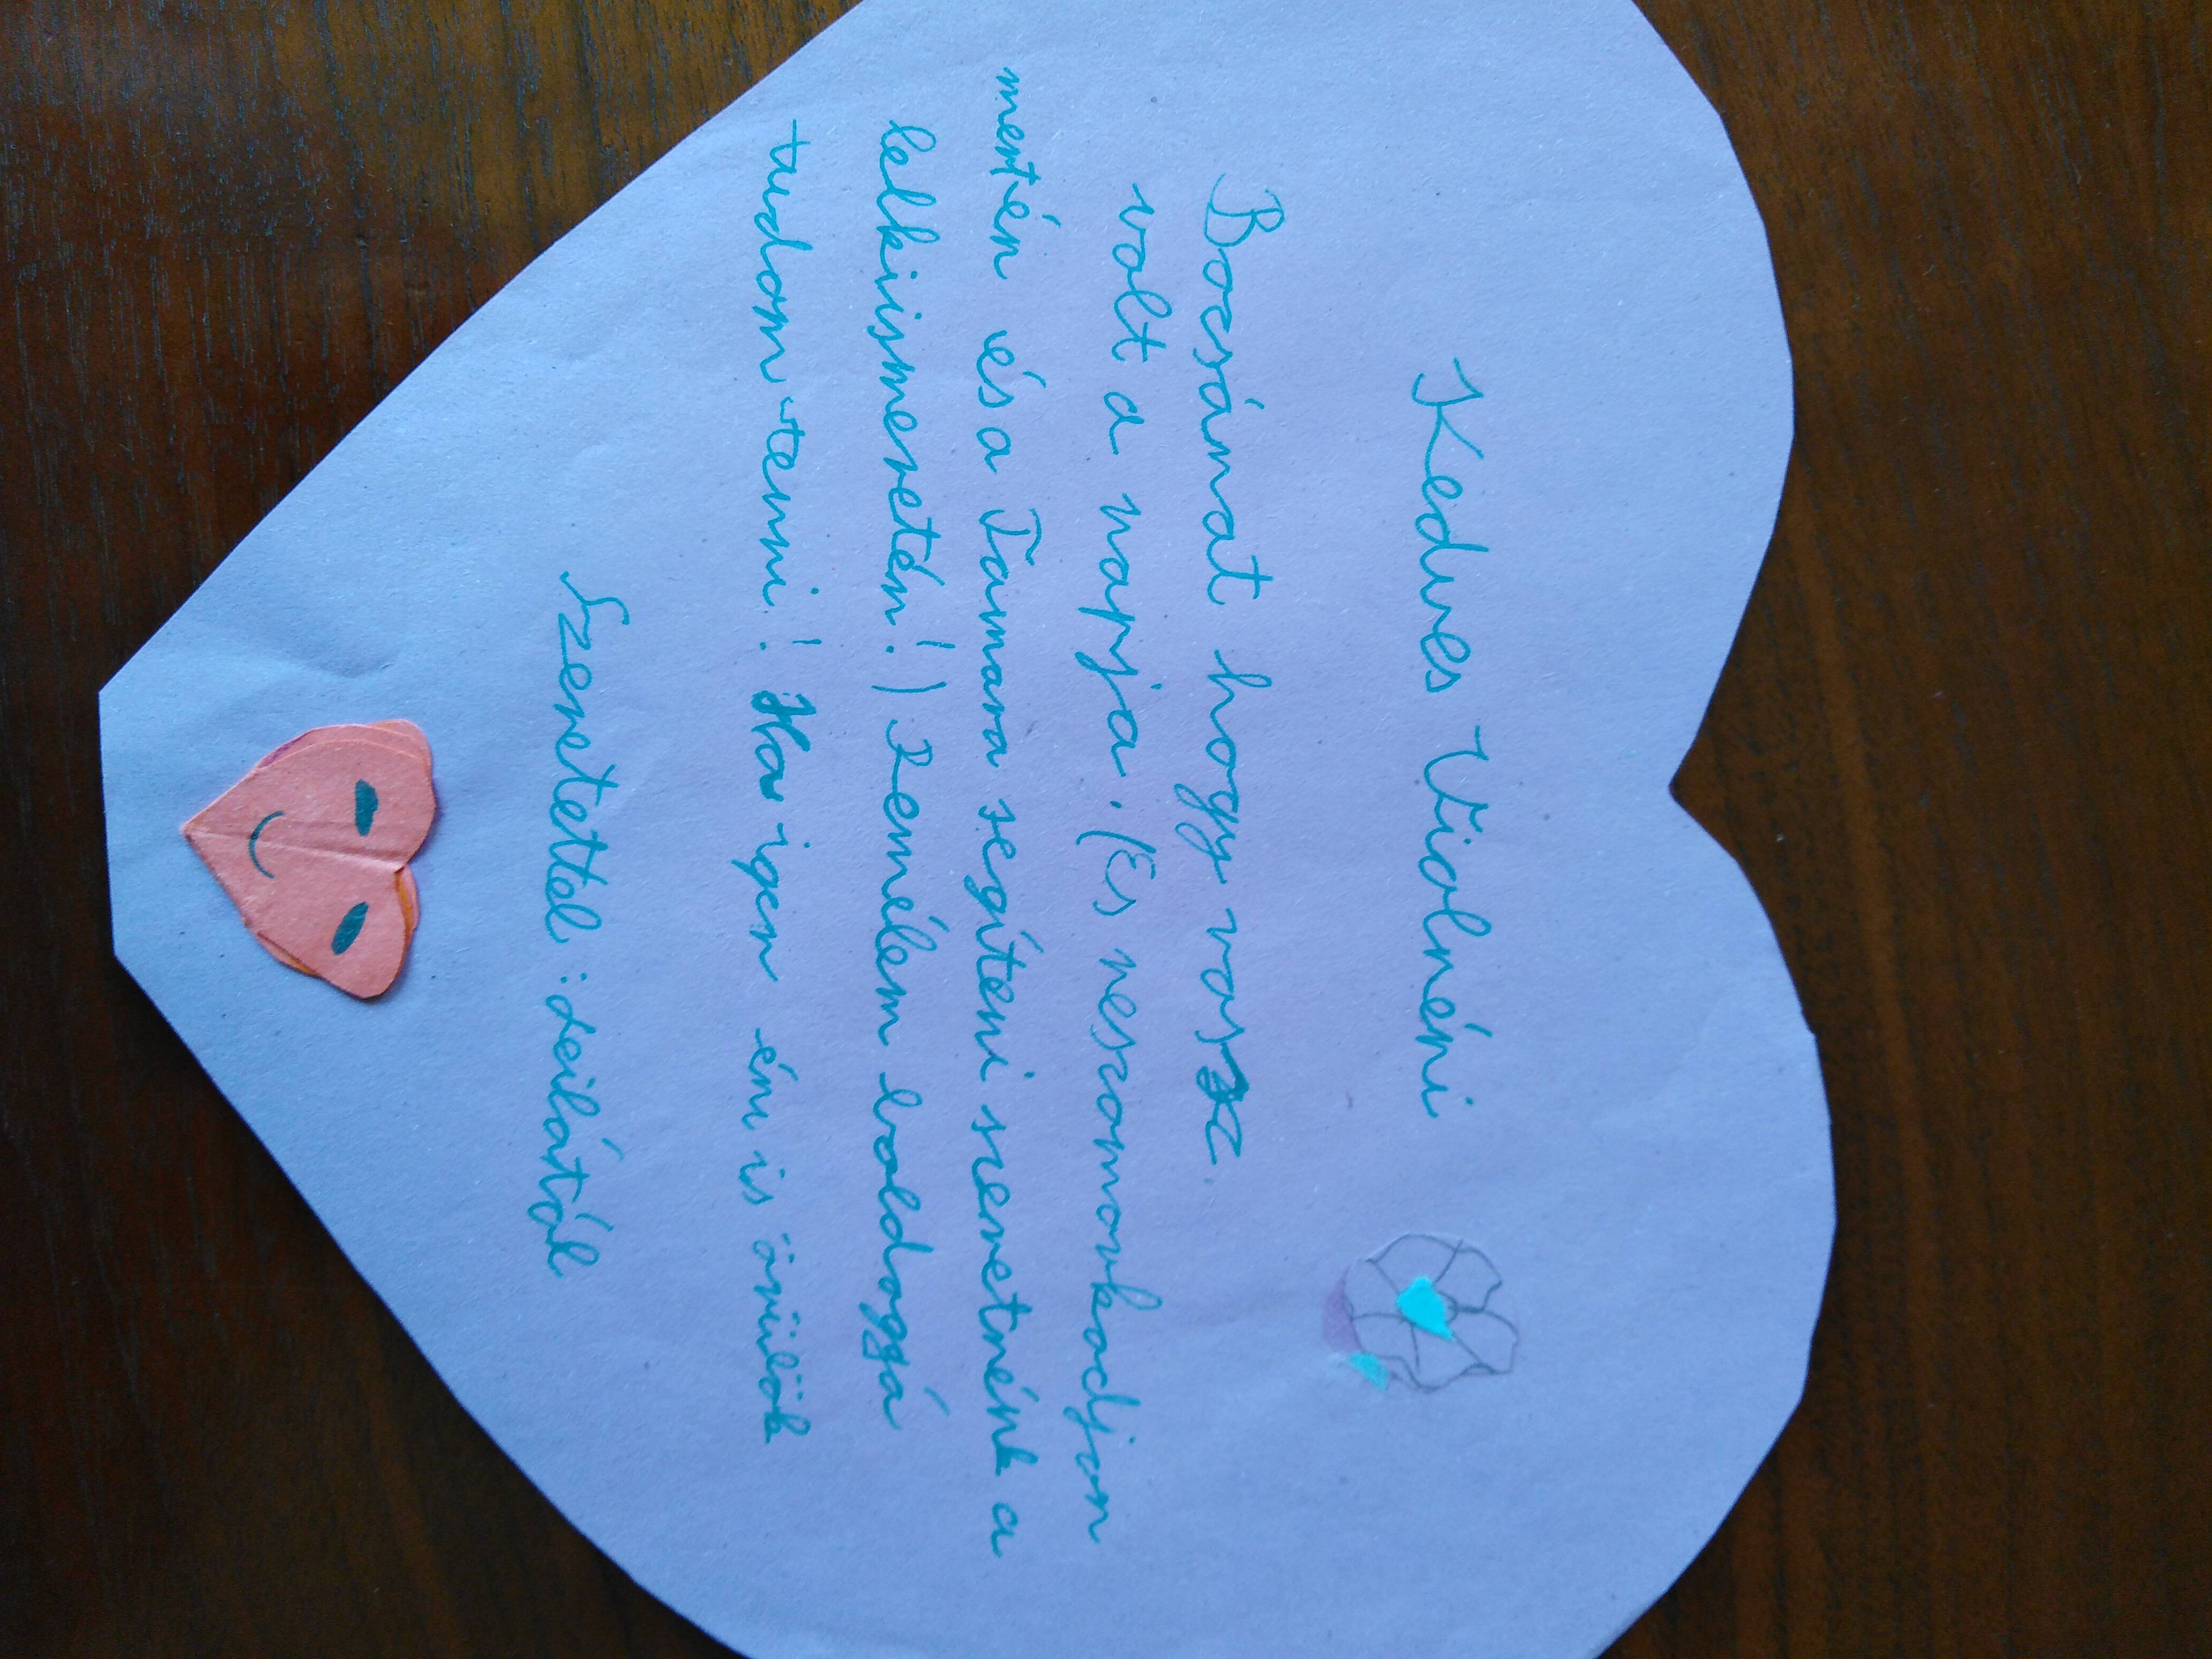 Kedves Violnéni
Bocsánat hogy rossz
volt a napja. (És neszomorkodjon
mertén és a Tamara segíteni szeretnénk a
lelkiismeretén!) Remélem boldoggá
tudom tenni! Ha igen én is örülök
Szeretettel: Leilától